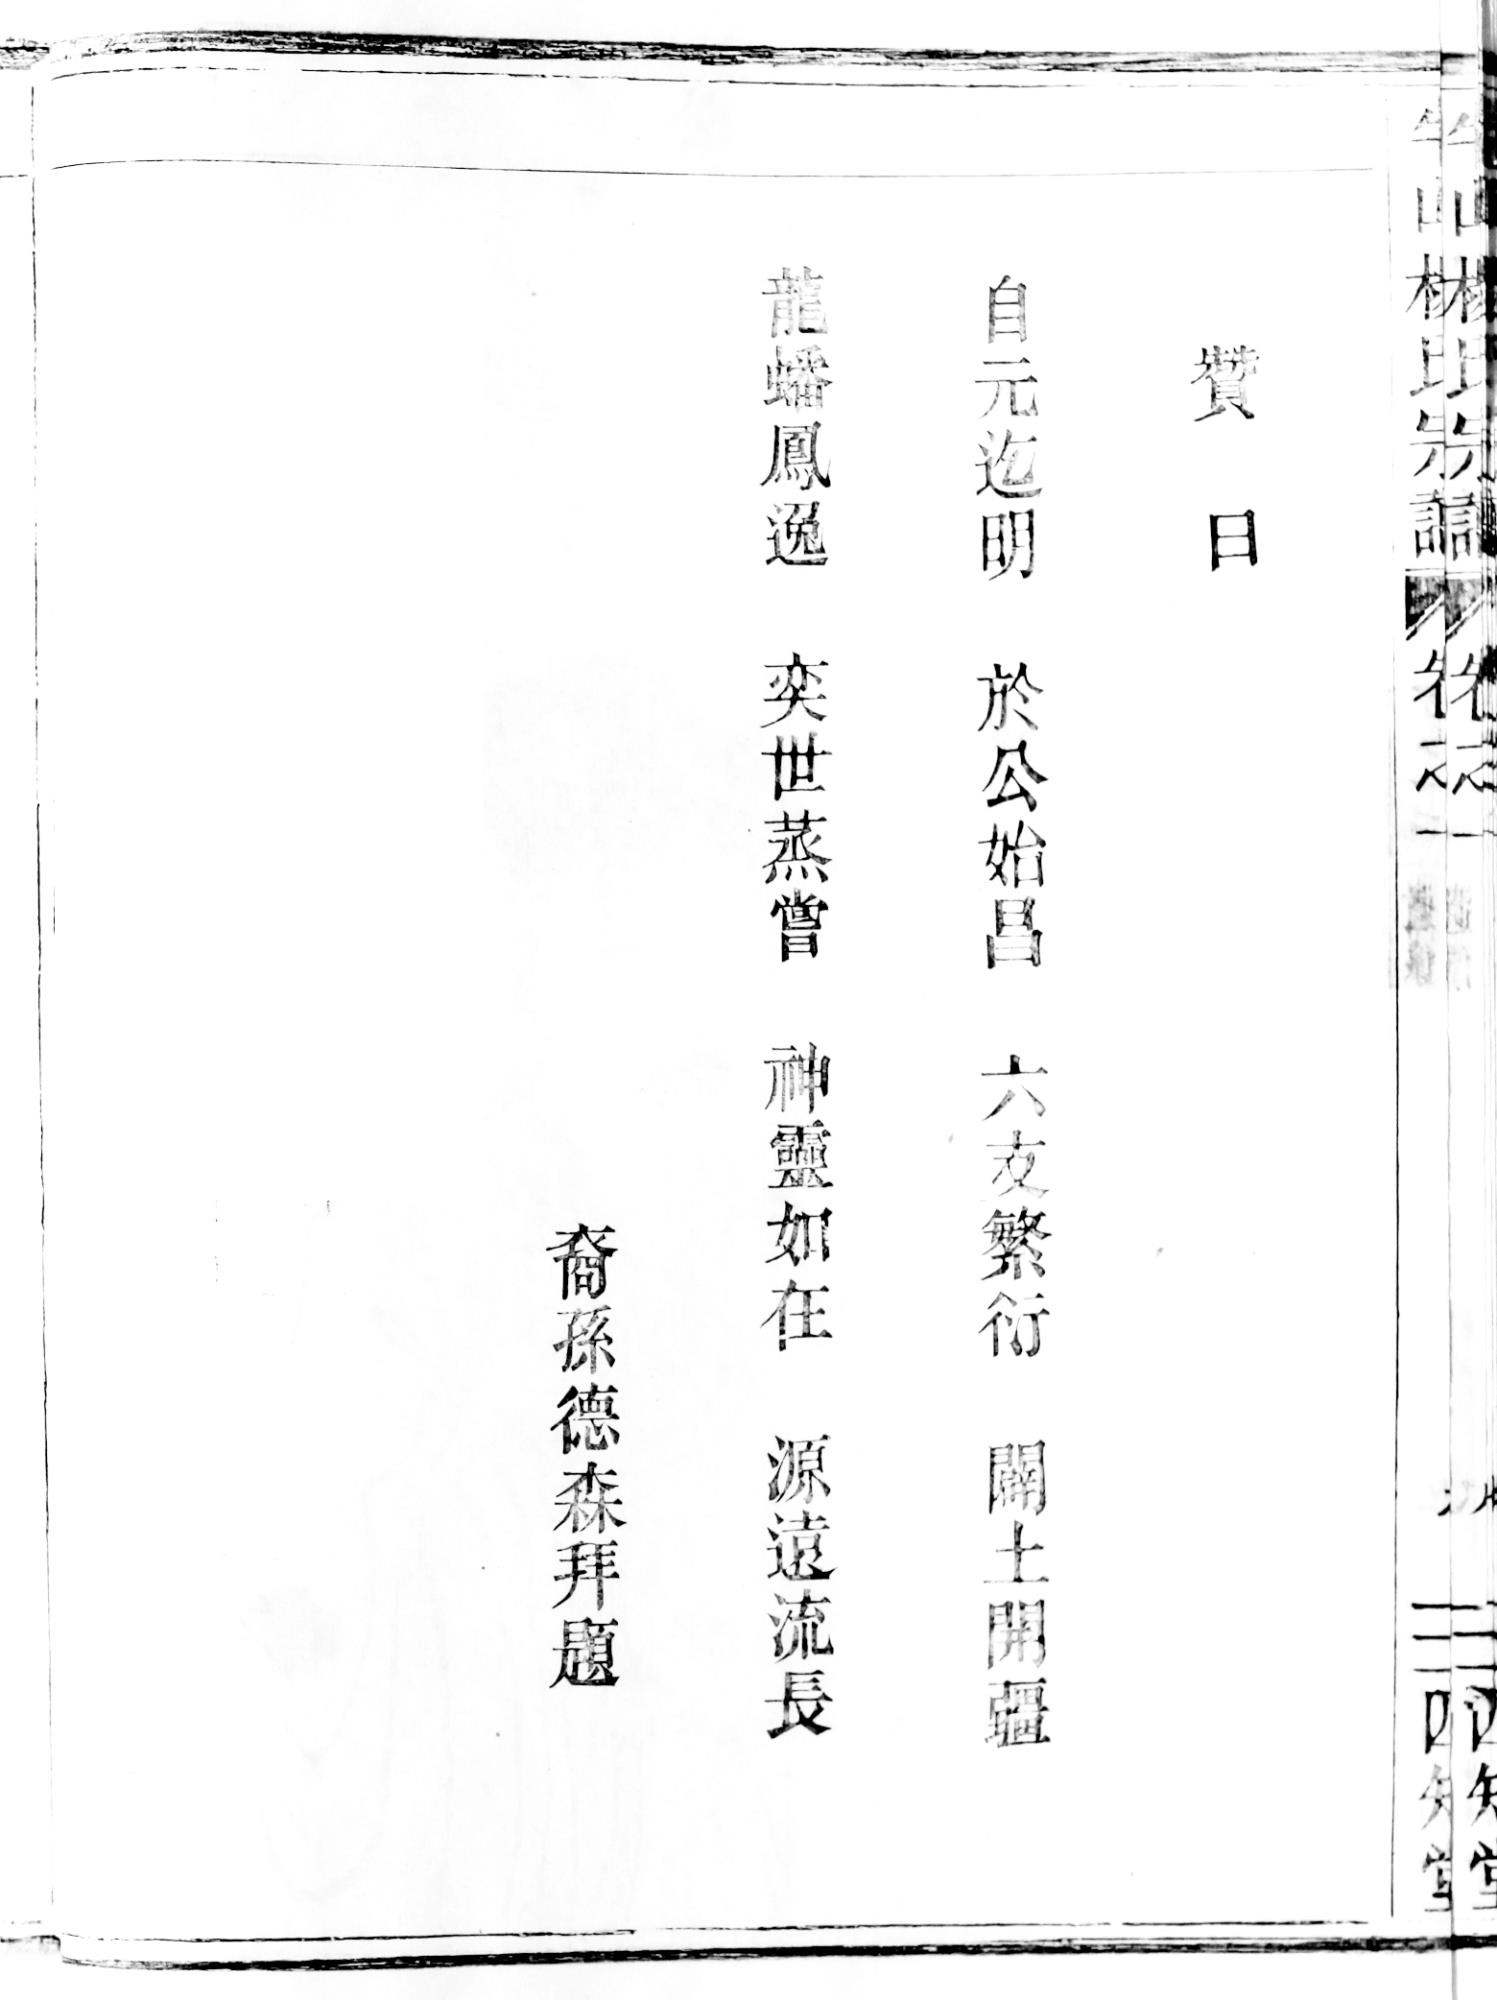 贊曰
自元迄明　於公始昌　六支繁衍　闢土開疆
龍蟠鳳逸　奕世蒸嘗　神靈如在　源遠流長
裔孫德森拜題
四知堂